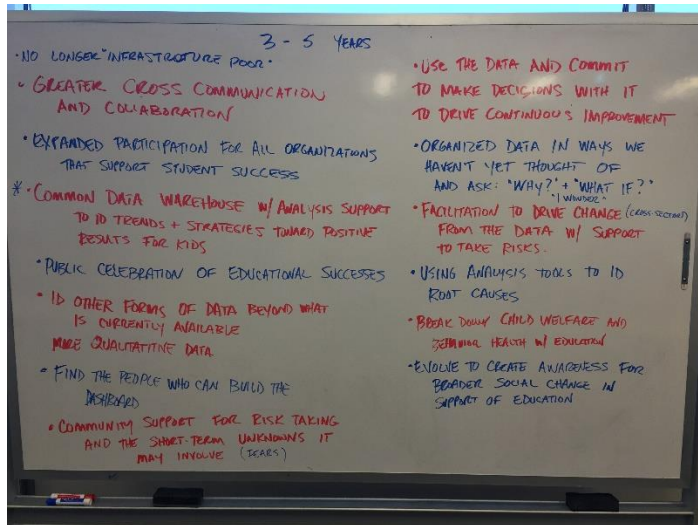 3 - 5 YEARS
• NO LONGER "INFRASTRUCTURE POOR"
• GREATER CROSS COMMUNICATION
AND COLLABORATION
• EXPANDED PARTICIPATION FOR ALL ORGANIZATIONS
THAT SUPPORT STUDENT SUCCESS
* • COMMON DATA WAREHOUSE W/ ANALYSIS SUPPORT
TO ID TRENDS + STRATEGIES TOWARD POSITIVE
RESULTS FOR KIDS
• PUBLIC CELEBRATION OF EDUCATIONAL SUCCESSES
• ID OTHER FORMS OF DATA BEYOND WHAT
IS CURRENTLY AVAILABLE
MORE QUALITATITIVE DATA
• FIND THE PEOPLE WHO CAN BUILD THE
DASHBOARD
• COMMUNITY SUPPORT FOR RISK TAKING
AND THE SHORT-TERM UNKNOWNS IT
MAY INVOLVE (FEARS)
• USE THE DATA AND COMMIT
TO MAKE DECISIONS WITH IT
TO DRIVE CONTINUOUS IMPROVEMENT
• ORGANIZED DATA IN WAYS WE
HAVEN'T YET THOUGHT OF
AND ASK: "WHY?" + "WHAT IF?"
"I WONDER"
• FACILITATION TO DRIVE CHANGE (CROSS-SECTOR)
FROM THE DATA W/ SUPPORT
TO TAKE RISKS.
• USING ANALYSIS TOOLS TO ID
ROOT CAUSES
• BREAK DOWN CHILD WELFARE AND
BEHAVIORAL HEALTH W/ EDUCATION
• EVOLVE TO CREATE AWARENESS FOR
BROADER SOCIAL CHANGE IN
SUPPORT OF EDUCATION